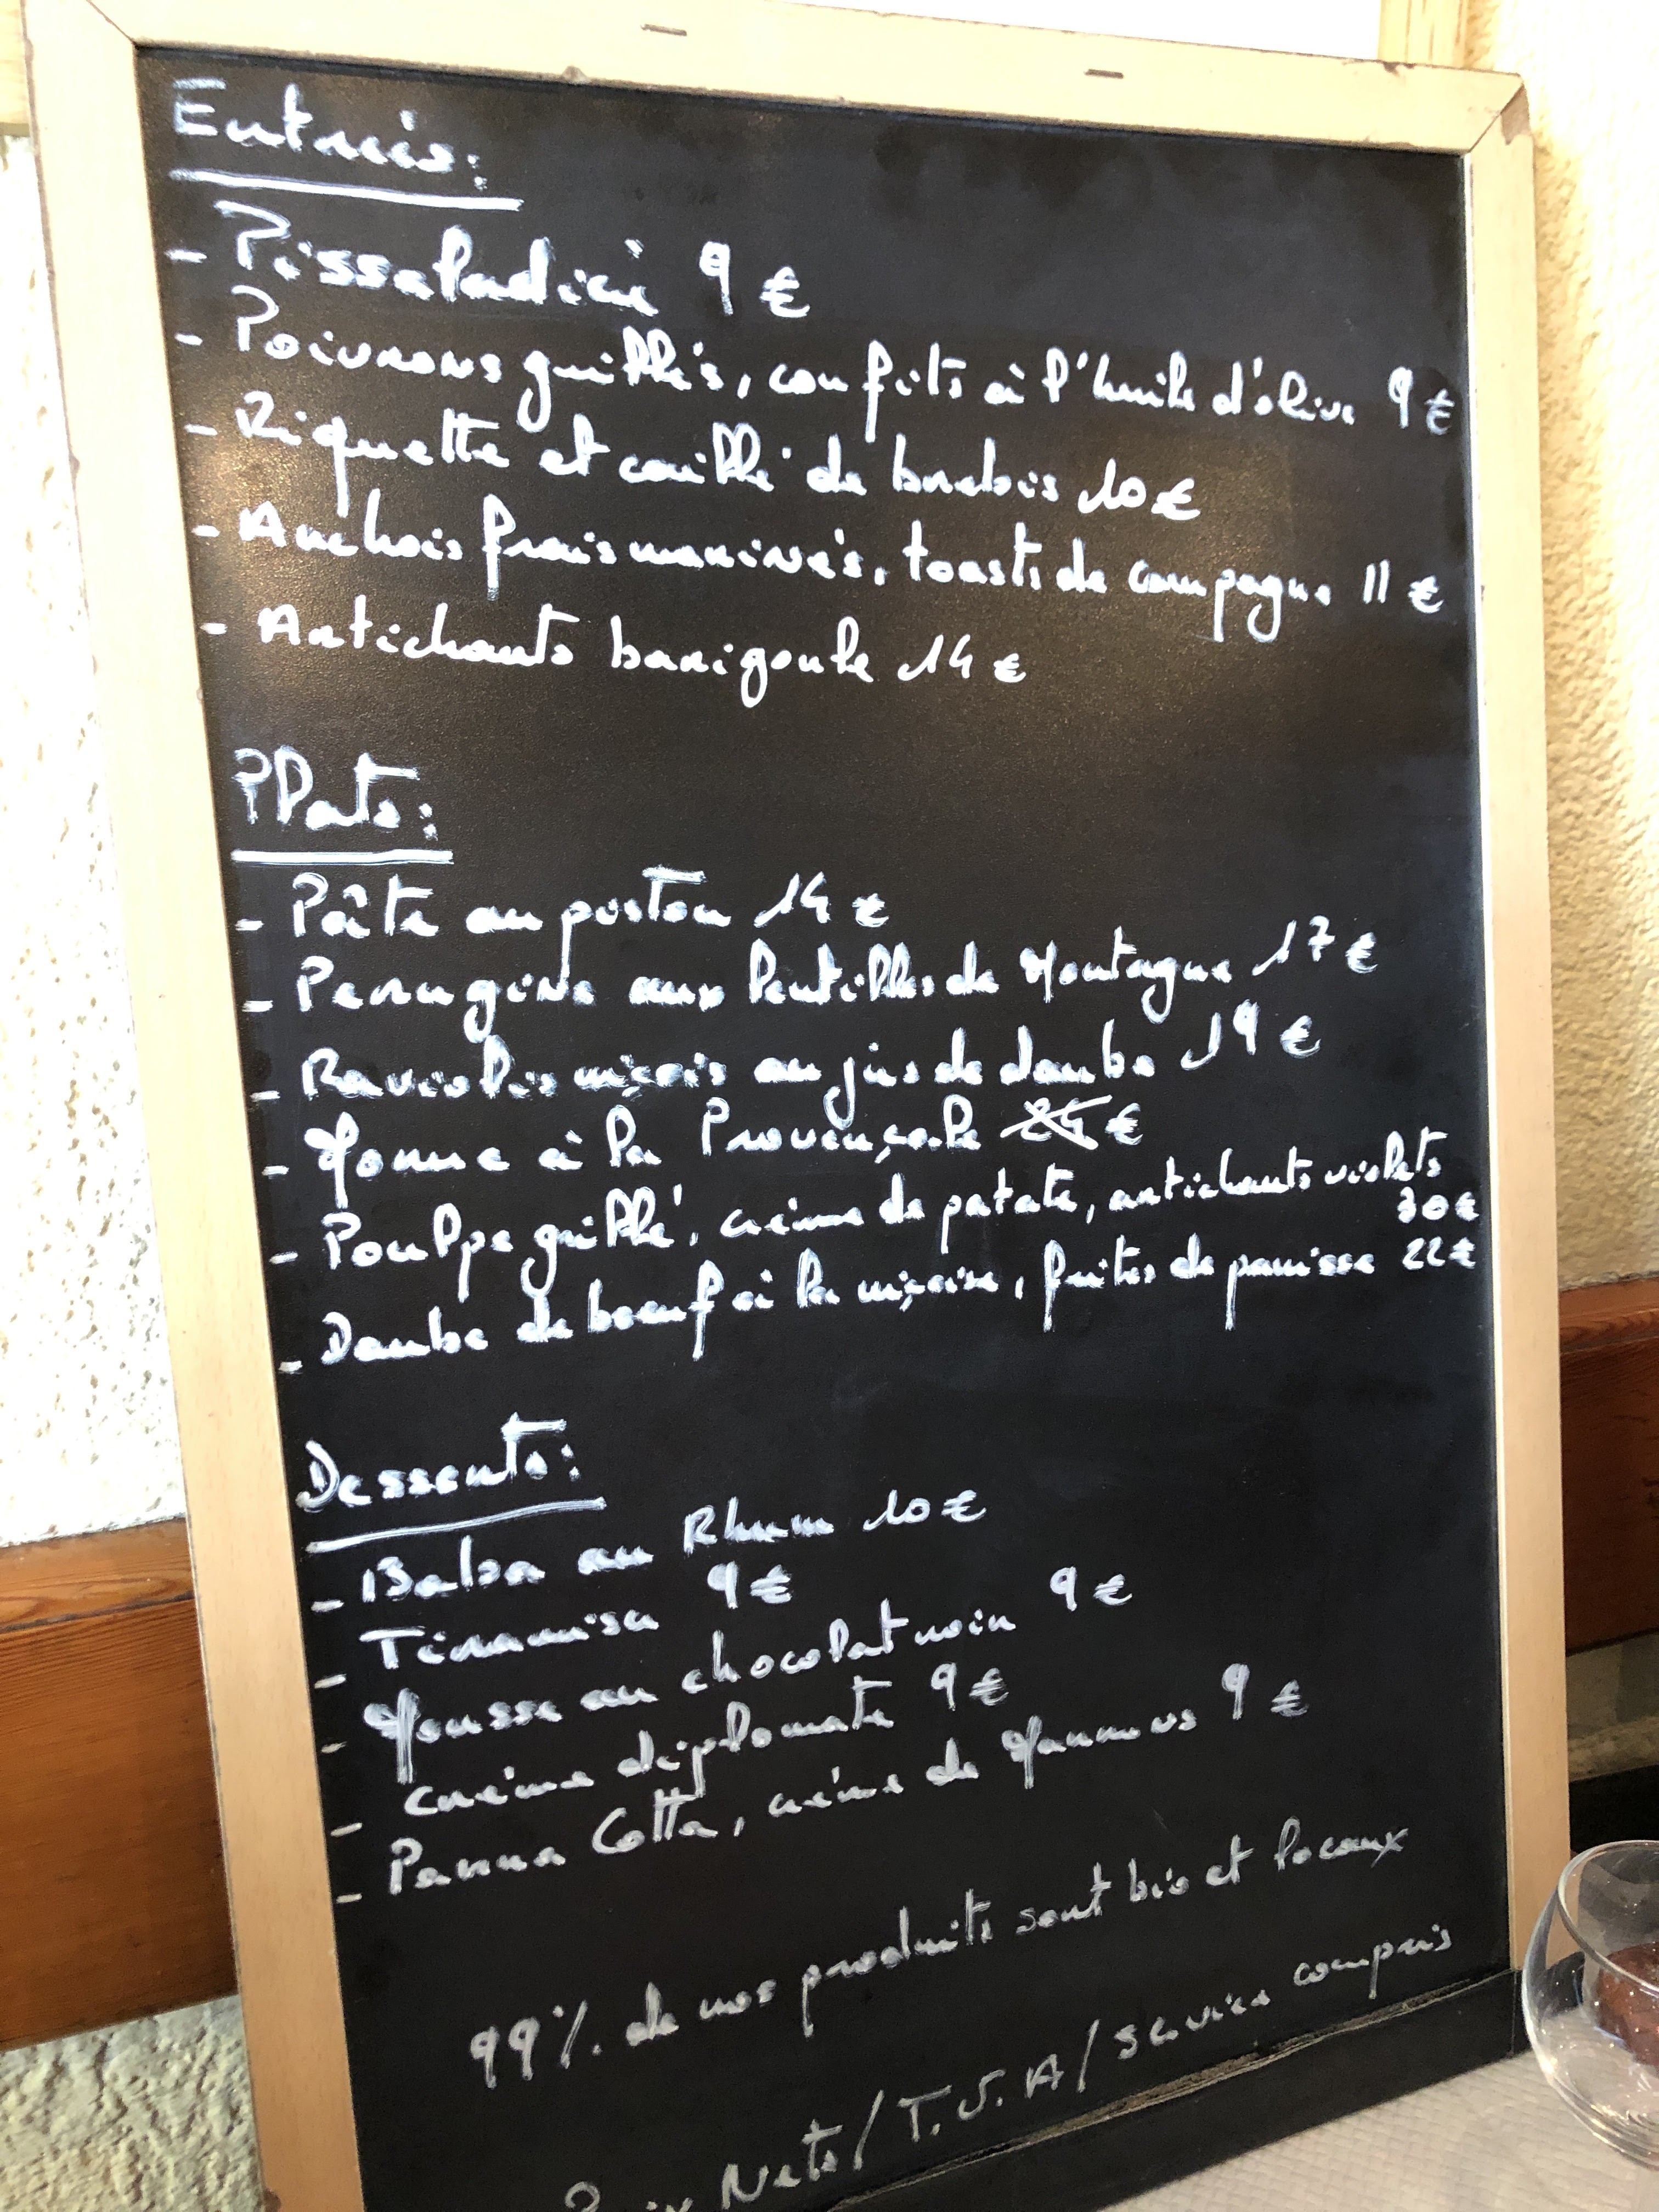 Entrées:
- Pissaladière 9 €
- Poivrons grillés, confits à l'huile d'olive 9 €
- Riquette et caillé de brebis 10 €
- Anchois frais marinés, toasts de campagne 11 €
- Artichauts barigoule 14 €
Plats:
- Pâte au pistou 14 €
- Perugine aux lentilles de Montagne 17 €
- Raviolis niçois au jus de daube 19 €
- Morue à la Provençale 24 €
- Poulpe grillé, crème de patate, artichauts violets
30 €
- Daube de boeuf à la niçoise, frites de panisse 22 €
Desserts:
- Baba au Rhum 10 €
- Tiramisu 9 €
- Mousse au chocolat noir 9 €
- crème diplomate 9 €
- Panna Cotta, crème de Marrons 9 €
99%. de nos produits sont bio et locaux
Prix Nets / T.V.A / Service compris